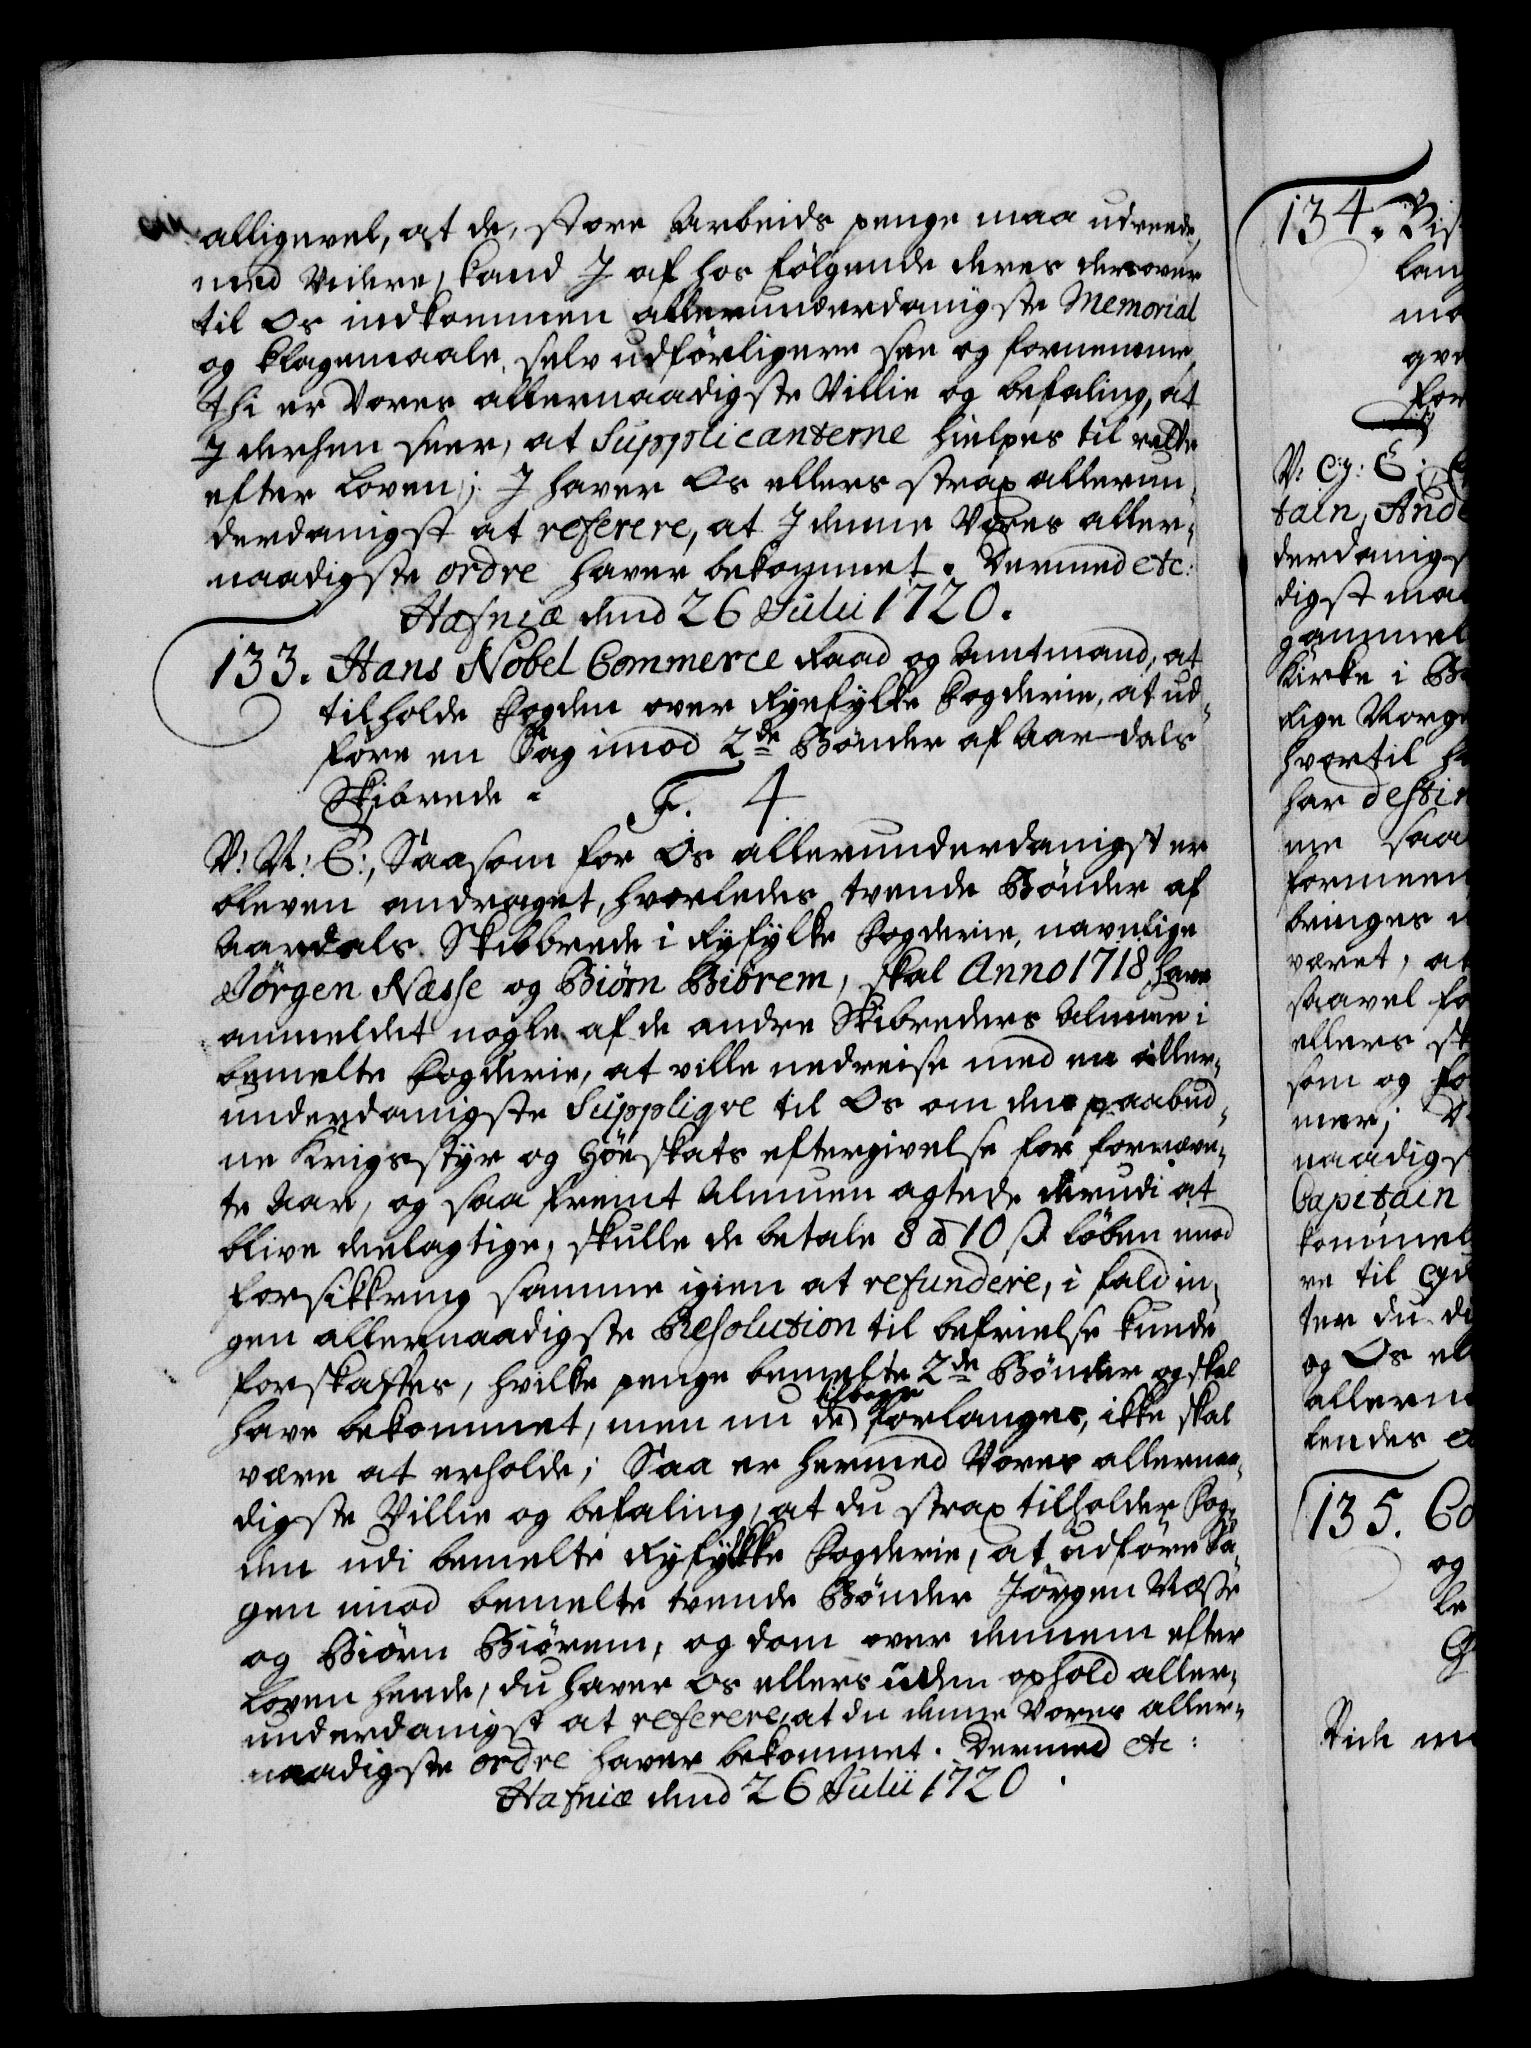 alligevel, at de, store Arbeids penge maa udreede,
med Videre, kand I af hos følgende deres derover
til Os indkommen allerunderdanigste Memorial
og klagemaale, selv udførligere see og fornemme,
thi er Vores allernaadigste Villie og befaling, at
I derhen seer, at Supplicanterne hielpes til rette
efter Loven; I haver Os ellers strax allerun-
derdanigst at referere, at I denne Vores aller-
naadigste ordre haver bekommet. Dermed etc:
Hafniæ dend 26 Julii 1720.
133. Hans Nobel Commerce Raad og Amtmand, at
tilholde Fogden over Ryefylke Fogderie, at ud-
føre en Sag imod 2de Bønder af Aardals
Skibrede.
F. 4
V: N: G:, Saasom for Os allerunderdanigst er
bleven andraget, hvorledes tvende Bønder af
Aardals Skibbrede i Ryfylke Fogderie, navnlige
Jørgen Næsse og Biørn Biörem, skal Anno 1718 have
anmeldet nogle af de andre Skibreders Almue i
bemelte Fogderie, at ville nedreise med en aller-
underdanigste Suppliqve til Os om den paabud-
ne Krigsstyr og Høeskats eftergivelse for fornævn-
te Aar, og saa fremt Almuen agtede derudi at
blive deelagtige, skulle de betale 8 à 10 ß Løben imod
forsikkring samme igien at refundere, i fald in-
gen allernaadigste Resolution til befrielse kunde
forskaffes, hvilke penge bemelte 2de Bønder og skal
tilbage
have bekommet, men nu de forlanges, ikke skal
være at erholde; Saa er hermed Vores allernaa-
digste Villie og befaling, at du strax tilholder Fog-
den udi bemelte Ryfylke Fogderie, at udføre Sa-
gen imod bemelte tvende Bønder Jørgen Næsse
og Biørn Biørem, og dom over dennem efter
Loven hende, du haver Os ellers uden ophold aller-
underdanigst at referere, at du denne Vores aller-
naadigste ordre haver bekommet. Dermed etc:
Hafniæ dend 26 Julii 1720.
134.
V: G: E:
tain, And
derdanigs
digst ma
gammel
Kirke i B
dige Norge
hvortil h
har destin
ne saa
formeen
bringes
været, at
saavel fo
ellers st
som og fo
mer;
naadigs
Capitain
kommel
re til
ter du
og Os el
allern
lendes
135. Co
og
le